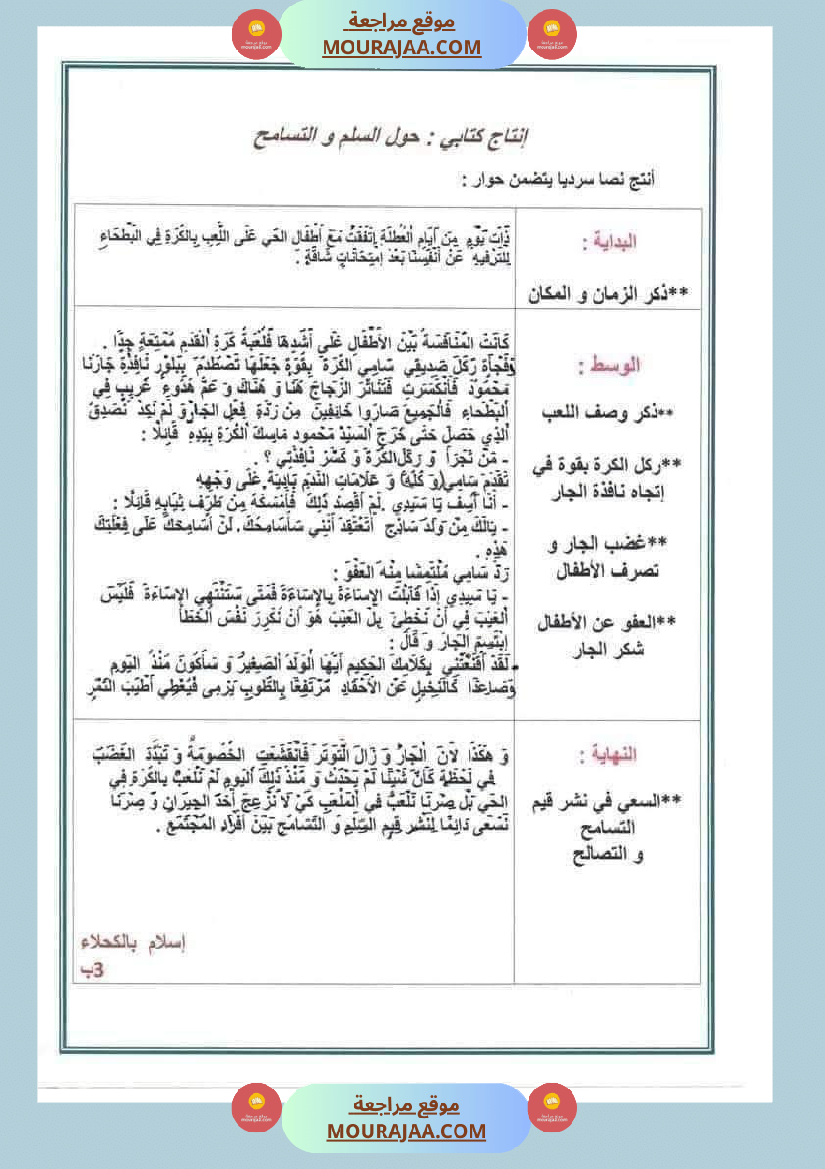 موقع مراجعة
MOURAJAA.COM
إنتاج كتابي : حول السلم و التسامح
أنتج نصا سرديا يتضمن حوار :
البداية :
**ذكر الزمان و المكان
ذَاتَ يَوْمٍ مِنَ أَيَامِ الْعُطْلَةِ إِتَفَقْتُ مَعَ أَطْفَالِ الحَي عَلَى اللَّعِبِ بِالكُرَةِ فِي البَطْحَاءِ
لِلتَرْفِيهِ عَنْ أَنْفُسِنَا بَعْدَ إِمْتِحَانَاتٍ شَاقَّةٍ .
الوسط :
**ذكر وصف اللعب
**ركل الكرة بقوة في
إتجاه نافذة الجار
**غضب الجار و
تصرف الأطفال
**العفو عن الأطفال
شكر الجار
كَانَتْ المُنَافَسَةُ بَيْنَ الأَطْفَالِ عَلَى أَشُدِهَا فَلُعْبَةُ كُرَةِ الْقَدَمِ مُمْتِعَةٌ جِدًا .
وَفَجْأَةً رَكَلَ صَدِيقِي سَامِي الكُرَةَ بِقُوَةٍ جَعَلَهَا تَصْطَدِمُ بِبَلُورِ نَافِذَةِ جَارِنَا
مَحْمُودْ فَانْكَسَرَتْ فَتَنَاثَرَ الزُجَاجَ هُنَا وَ هُنَاكَ وَ عَمَّ هُدُوءٌ غَرِيبٌ فِي
البَطْحَاءِ فَالجَمِيعُ صَارُوا خَائِفِينَ مِنْ رَدَّةِ فِعْلِ الجَارِ وَ لَمْ نَكِدْ نُصَدِقُ
الَذِي حَصَلَ حَتَى خَرَجَ السَيِّدُ مَحْمود مَاسِكَ الكُرَةِ بِيَدِهِ قَائِلًا :
- مَنْ تَجَرَأَ وَ رَكَلَ الكُرَةَ وَ كَسَرَ نَافِذَتِي ؟ .
تَقَدَمَ سَامِي(وَ كُلُهُ) وَ عَلَامَاتُ النَدَمِ بَادِيَة عَلَى وَجْهِهِ
- أَنَا آسِفٌ يَا سَيِدِي .لَمْ أَقْصِدْ ذَلِكَ فَأَمْسَكَهُ مِنْ طَرَفِ ثِيَابِهِ قَائِلًا :
- يَالَكَ مِنْ وَلَدٍ سَاذِجٍ أَتَعْتَقِدُ أَنَنِي سَأُسَامِحُكَ. لَنْ أُسَامِحَكَ عَلَى فِعْلَتِكَ
هَذِهِ .
رَدَّ سَامِي مُلْتَمِسًا مِنْهُ العَفْوَ :
- يَا سَيِدِي إِذَا قَابَلْتَ الإِسَاءَةَ بِالإِسَاءَةِ فَمَتَى سَتَنْتَهِي الإِسَاءَةُ فَلَيْسَ
العَيْبَ فِي أَنْ نُخْطِئَ بَلْ العَيْبَ هُوَ أَنْ نُكَرِرَ نَفْسَ الْخَطَأَ
إِبْتَسَمَ الجَارُ وَ قَالَ :
- لَقَدْ أَقْنَعْتَنِي بِكَلَامِكَ الحَكِيمِ أَيُهَا الْوَلَدُ الصَغِيرُ وَ سَأَكُونُ مُنْذُ اليَوْمِ
وَصَاعِدًا كَالنَخِيلِ عَنْ الأَحْقَادِ مُرْتَفِعًا بِالطُوبِ يُرْمِى فَيُعْطِي أَطْيَبَ الثَمَرِ
النهاية :
**السعي في نشر قيم
التسامح
و التصالح
وَ هَكَذَا لَانَ الْجَارُ وَ زَالَ التَّوَتُرَ فَانْقَشَعَتِ الخُصُومَةُ وَ تَبَدَّدَ الغَضَبُ
فِي لَحْظَةٍ كَأَنَّ شَيْئًا لَمْ يَحْدُثْ وَ مُنْذُ ذَلِكَ اليَوْمِ لَمْ نَلْعَبْ بِالكُرَةِ فِي
الحَي بَلْ صِرْنَا نَلْعَبُ فِي المَلْعَبِ كَيْ لَا نُزْعِجَ أَحَدَ الجِيرَانِ وَ صِرْنَا
نَسْعَى دَائِمًا لِنَشْرِ قِيَمِ السِّلْمِ وَ التَّسَامُحِ بَيْنَ أَفْرَادِ المُجْتَمَعْ .
إسلام بالكحلاء
3ب
موقع مراجعة
MOURAJAA.COM